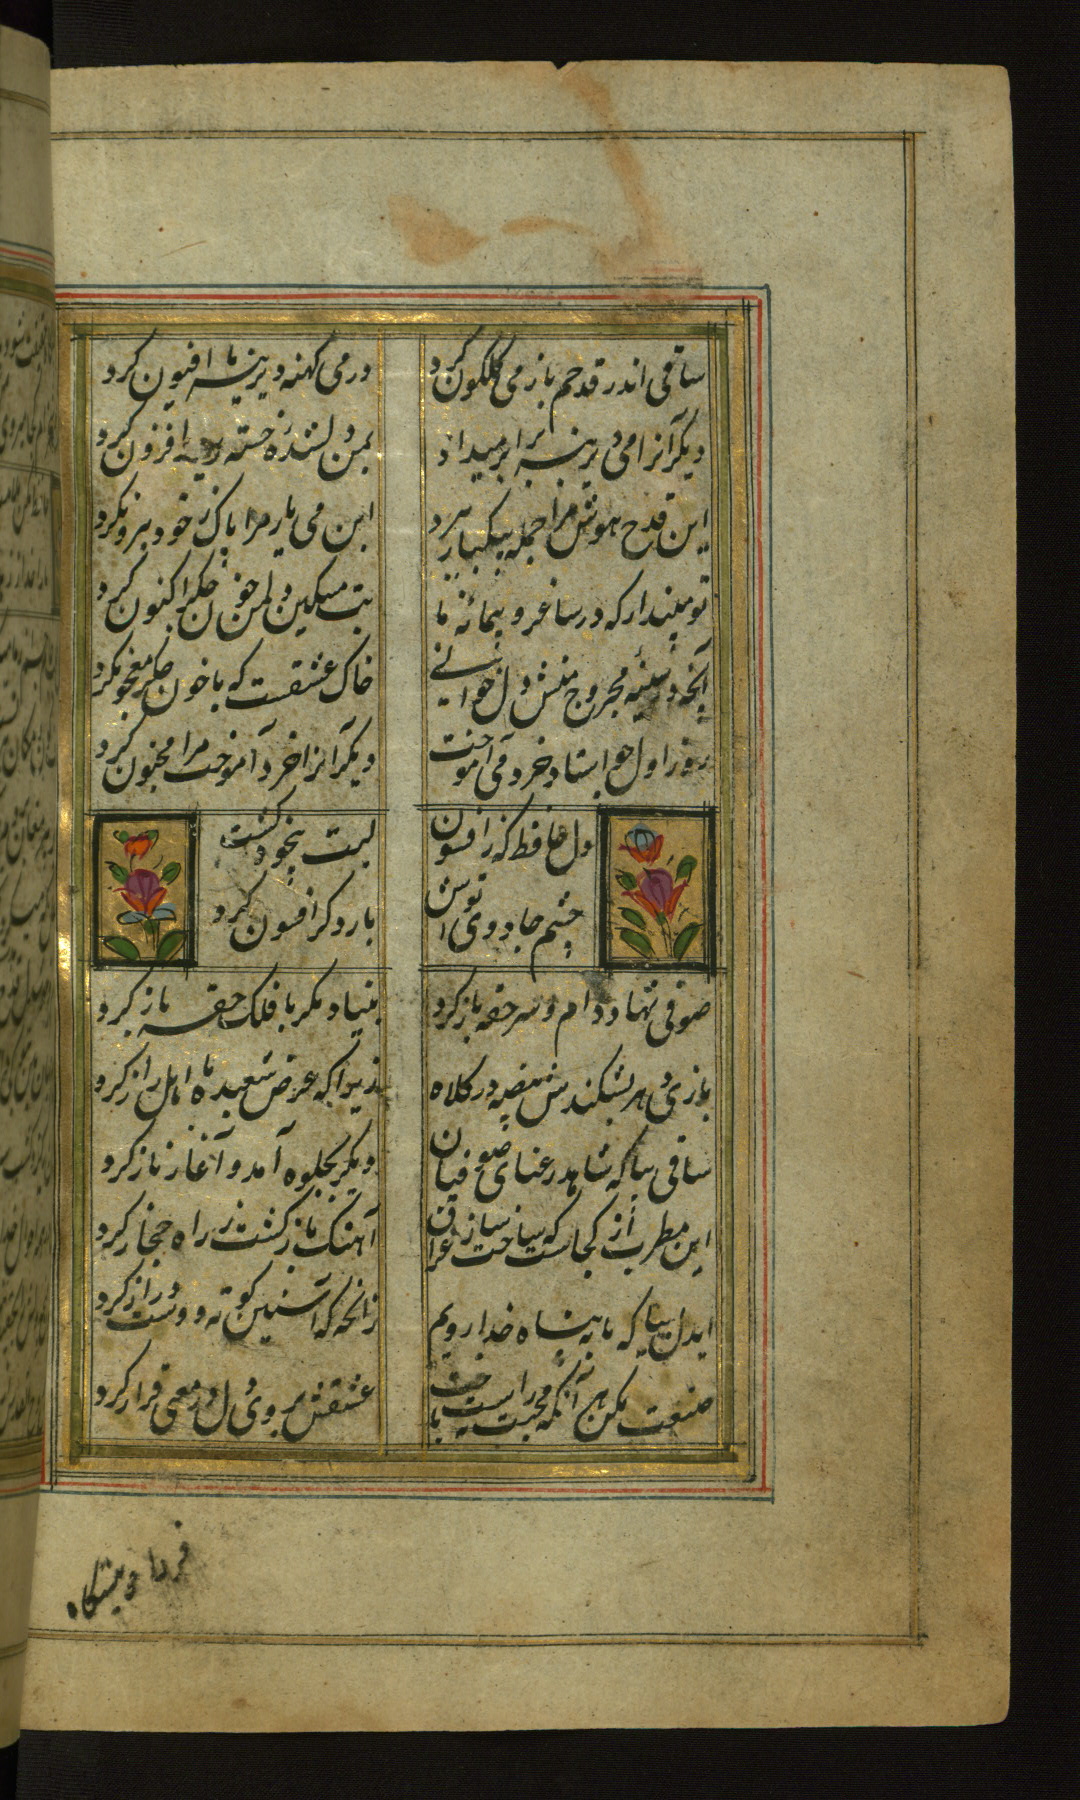 ساقی اندر قدحم باز می گلگون کرد
در می کهنه دیرینه ما افیون کرد
دیگرانرا می دیرینه برابر میداد
بمن دلشده خسته رسید افزون کرد
این قدح هوش مرا جمله بیکبار ببرد
این می یار مرا پاک ز خود بیرون کرد
تو مپندار که در ساغر و پیمانه ما
بت مسکین دلمن خون جگر اکنون کرد
آنچه در سینه مجروح منش دل خوانی
خاک عشقست که با خون جگر معجون کرد
روز اول چو استاد خرد می آموخت
دیگرانرا خرد آموخت مرا مجنون کرد
دل حافظ که ز افسون
لبت بیخود گشت
چشم جادوی توش
بار دگر افسون کرد
صوفی نهاد دام و سر حقه باز کرد
بنیاد مکر با فلک حقه باز کرد
بازی دهر بشکندش بیضه در کلاه
زیرا که عرض شعبده با اهل راز کرد
ساقی بیا که شاهد رعنای صوفیان
دیگر بجلوه آمد و آغاز ناز کرد
این مطرب از کجاست که ساز عراق ساخت
آهنگ باز گشت ز راه حجاز کرد
ایدل بیا که ما به پناه خدا رویم
زانچه که آستین کوته و دست دراز کرد
صنعت مکن هر آنکه محبت نه راست باخت
عشقش بروی دل در معنی فراز کرد
فردا که پیشگاه